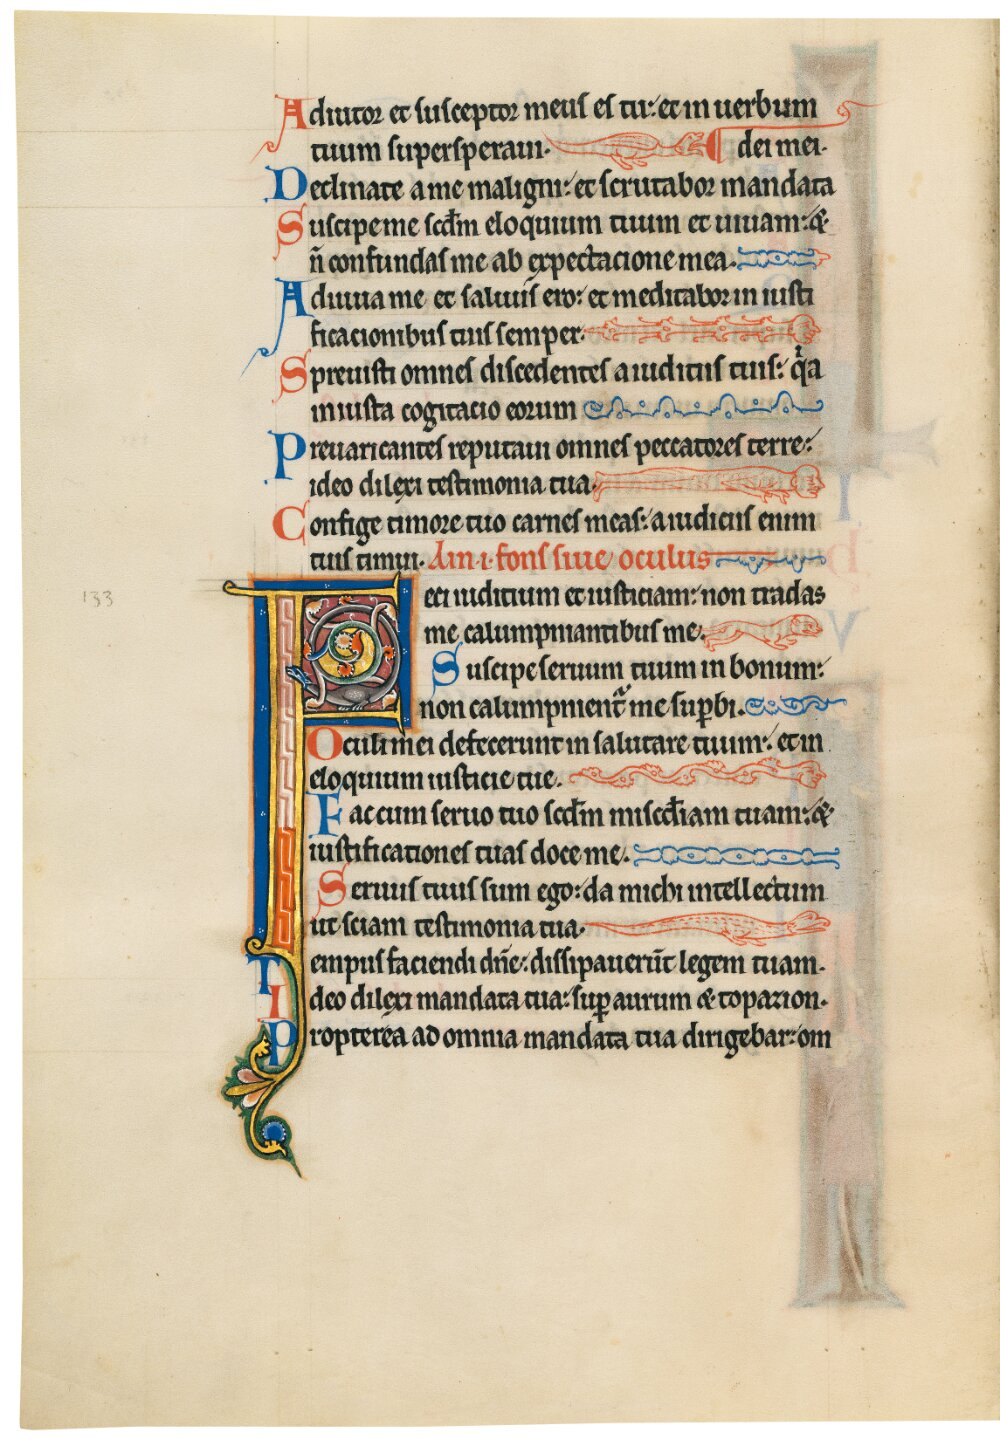 Adiutor et susceptor meus es tu: et in uerbum
tuum supersperaui. dei mei.
Declinate a me maligni: et scrutabor mandata
Suscipe me scd̄m eloquium tuum et uiuam: &
n̄ confundas me ab expectacione mea.
Adiuua me et saluus ero: et meditabor in iusti
ficacionibus tuis semper.
Spreuisti omnes discedentes a iudiciis tuis: qͣa
iniusta cogitacio eorum
Preuaricantes reputaui omnes peccatores terre:
ideo dilexi testimonia tua.
Confige timore tuo carnes meas: a iudiciis enim
tuis timui. Ain .i. fons siue oculus
Feci iudicium et iusticiam: non tradas
me calumpniantibus me.
Suscipe seruum tuum in bonum:
non calumpnientᷓ me sup̄bi.
Oculi mei defecerunt in salutare tuum: et in
eloquium iusticie tue.
Fac cum seruo tuo scd̄m misc̄diam tuam: &
iustificationes tuas doce me.
Seruus tuus sum ego: da michi intellectum
ut sciam testimonia tua.
Tempus faciendi dn̄e: dissipauerūt legem tuam.
Ideo dilexi mandata tua: sup̄ aurum & topazion.
Propterea ad omnia mandata tua dirigebar: om
133